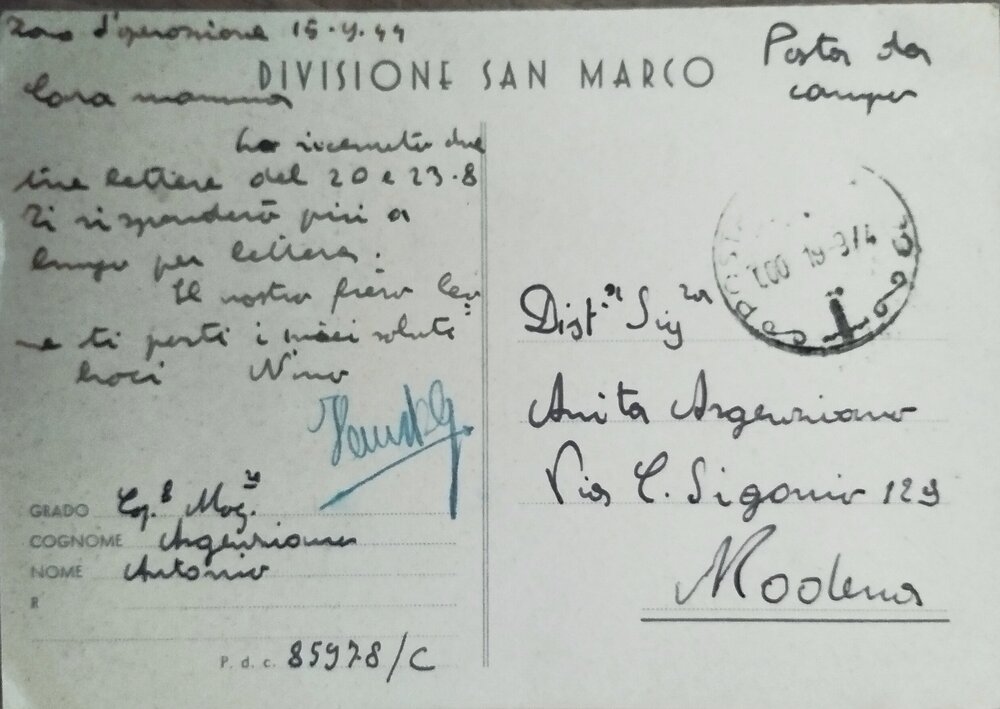 Zona d'operazione 15.9.44
DIVISIONE SAN MARCO
Posta da
campo
Cara mamma
ho ricevuto due
tue lettere del 20 e 23.8
Ti risponderò più a
lungo per lettera.
Il nostro fiero leo
ne ti porti i miei saluti
baci Nino
Dist.ma Sig.ra
Anita Argenziano
Via C. Sigonio 129
Modena
GRADO C.g.e Mag.re
COGNOME Argenziano
NOME Antonio
R
P. d. c. 85978/C